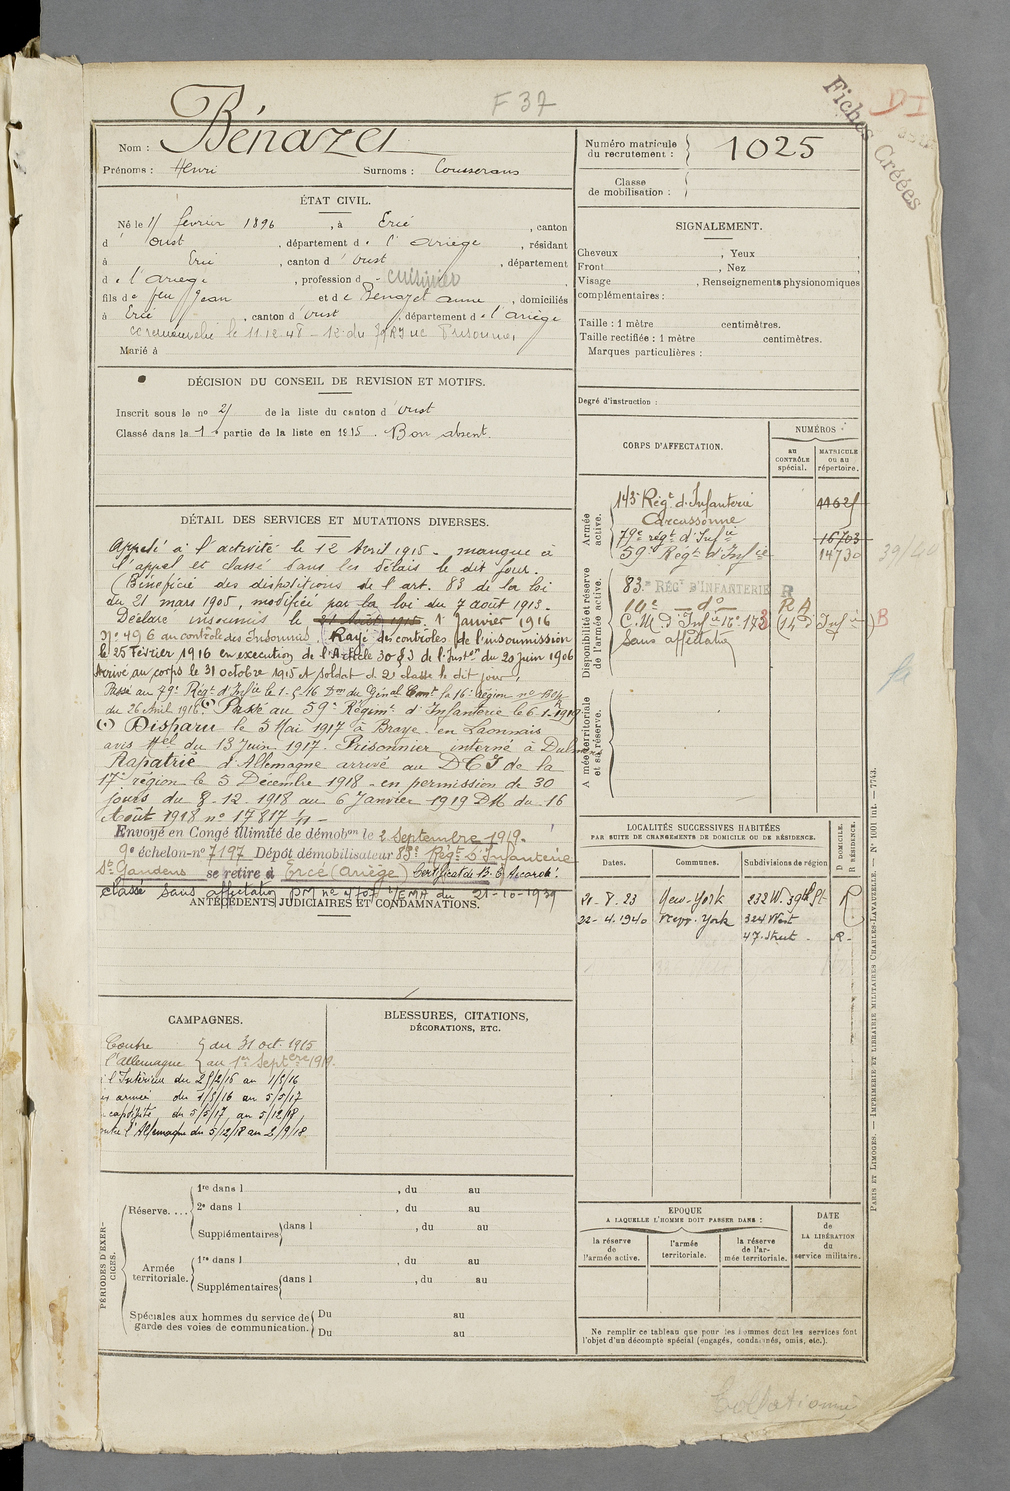 F 37
Fiches Créées
Nom : Bénazet
Prénoms : Henri Surnoms : Cousserans
Numéro matricule du recrutement : 1025
Classe de mobilisation :
ÉTAT CIVIL.
Né le février 1896, à Ercé, canton
d'Oust, département de l'Ariège, résidant
à Ercé, canton d'Oust, département
de l'Ariège, profession de cuisinier
fils de feu Jean et de Bénazet Anne, domiciliés
à Ercé, canton d'Oust, département de l'Ariège
Marié à
SIGNALEMENT.
Cheveux , Yeux ,
Front , Nez ,
Visage , Renseignements physionomiques
complémentaires :
Taille : 1 mètre centimètres.
Taille rectifiée : 1 mètre centimètres.
Marques particulières :
Degré d'instruction :
DÉCISION DU CONSEIL DE REVISION ET MOTIFS.
Inscrit sous le nº de la liste du canton d'Oust
Classé dans la 1e partie de la liste en 1915. Bon absent.
DÉTAIL DES SERVICES ET MUTATIONS DIVERSES.
Appelé à l'activité le 12 Avril 1915 - manque à
l'appel et classé dans les délais le dit jour.
(Bénéficié des dispositions de l'art. 83 de la loi
du 21 mars 1905, modifiée par la loi du 7 août 1913 -
Déclaré insoumis le 1 Janvier 1916
nº 496 au contrôle des Insoumis. Rayé des contrôles de l'insoumission
le 25 Février 1916 en execution de l'Article 30 § 3 de l'Inston du 20 juin 1906
Arrivé au corps le 31 octobre 1915 et soldat de 2e classe le dit jour,
Passé au 79e Régt d'Infie le 1-5-16 Don du Général Comt la 16e région
du 26 Avril 1916. Passé au 59e Régimt d'Infanterie le 6-1-1919.
Disparu le 5 Mai 1917 à Braye-en-Laonnais
avis Mel du 13 Juin 1917. Prisonnier interné à
Rapatrié d'Allemagne arrivé au D C I de la
17e région le 5 Décembre 1918 - en permission de 30
jours du 8-12-1918 au 6 Janvier 1919 DM du 16
Août 1918 nº 17817
Envoyé en Congé illimité de démobon le 2 Septembre 1919.
9e échelon-nº 7197 Dépôt démobilisateur Régt d'Infanterie
St Gaudens se retire à Ercé (Ariège) Certificat de B. C. Accordé.
classé sans affectation DM nº EMA du 21-10-1939
ANTÉCÉDENTS JUDICIAIRES ET CONDAMNATIONS.
CORPS D'AFFECTATION.
NUMÉROS
au CONTRÔLE spécial.
MATRICULE ou au répertoire.
Armée active.
143e Régt d'Infanterie
Carcassonne
79e régt d'Infie 16703
59e Régt d'Infie 14730
39/40
Disponibilité et réserve de l'armée active.
83e RÉGT D'INFANTERIE R
14e - do - R A
C. M. d'Infie nº 173 (14e D. Infie) B
Sans affectation
Armée territoriale et sa réserve.
LOCALITÉS SUCCESSIVES HABITÉES
PAR SUITE DE CHANGEMENTS DE DOMICILE OU DE RÉSIDENCE.
D DOMICILE.
R RÉSIDENCE.
Dates. Communes. Subdivisions de région
21-8-23 New-York 232 W. 39th St R
22-4-1940 New-York 324 West
47. Street - R-
CAMPAGNES.
Contre l'Allemagne du 31 oct. 1915
au 1er Septbre 1919.
l'Intérieur du 25/2/16 au 1/5/16
armée du 1/5/16 au 5/5/17
captivité du 5/5/17 au 5/12/18
l'Allemagne du 5/12/18 au 2/9/18
BLESSURES, CITATIONS,
DÉCORATIONS, ETC.
PÉRIODES D'EXERCICES.
Réserve....
1re dans l , du au
2e dans l , du au
Supplémentaires dans l , du au
Armée territoriale.
1re dans l , du au
Supplémentaires dans l , du au
Spéciales aux hommes du service de garde des voies de communication.
Du au
Du au
EPOQUE
A LAQUELLE L'HOMME DOIT PASSER DANS :
la réserve de l'armée active.
l'armée territoriale.
la réserve de l'armée territoriale.
DATE de LA LIBÉRATION du service militaire.
Ne remplir ce tableau que pour les hommes dont les services font
l'objet d'un décompte spécial (engagés, condamnés, omis, etc.).
PARIS ET LIMOGES. — IMPRIMERIE ET LIBRAIRIE MILITAIRES CHARLES-LAVAUZELLE. — Nº 1001 int. — 7743.
Collationné